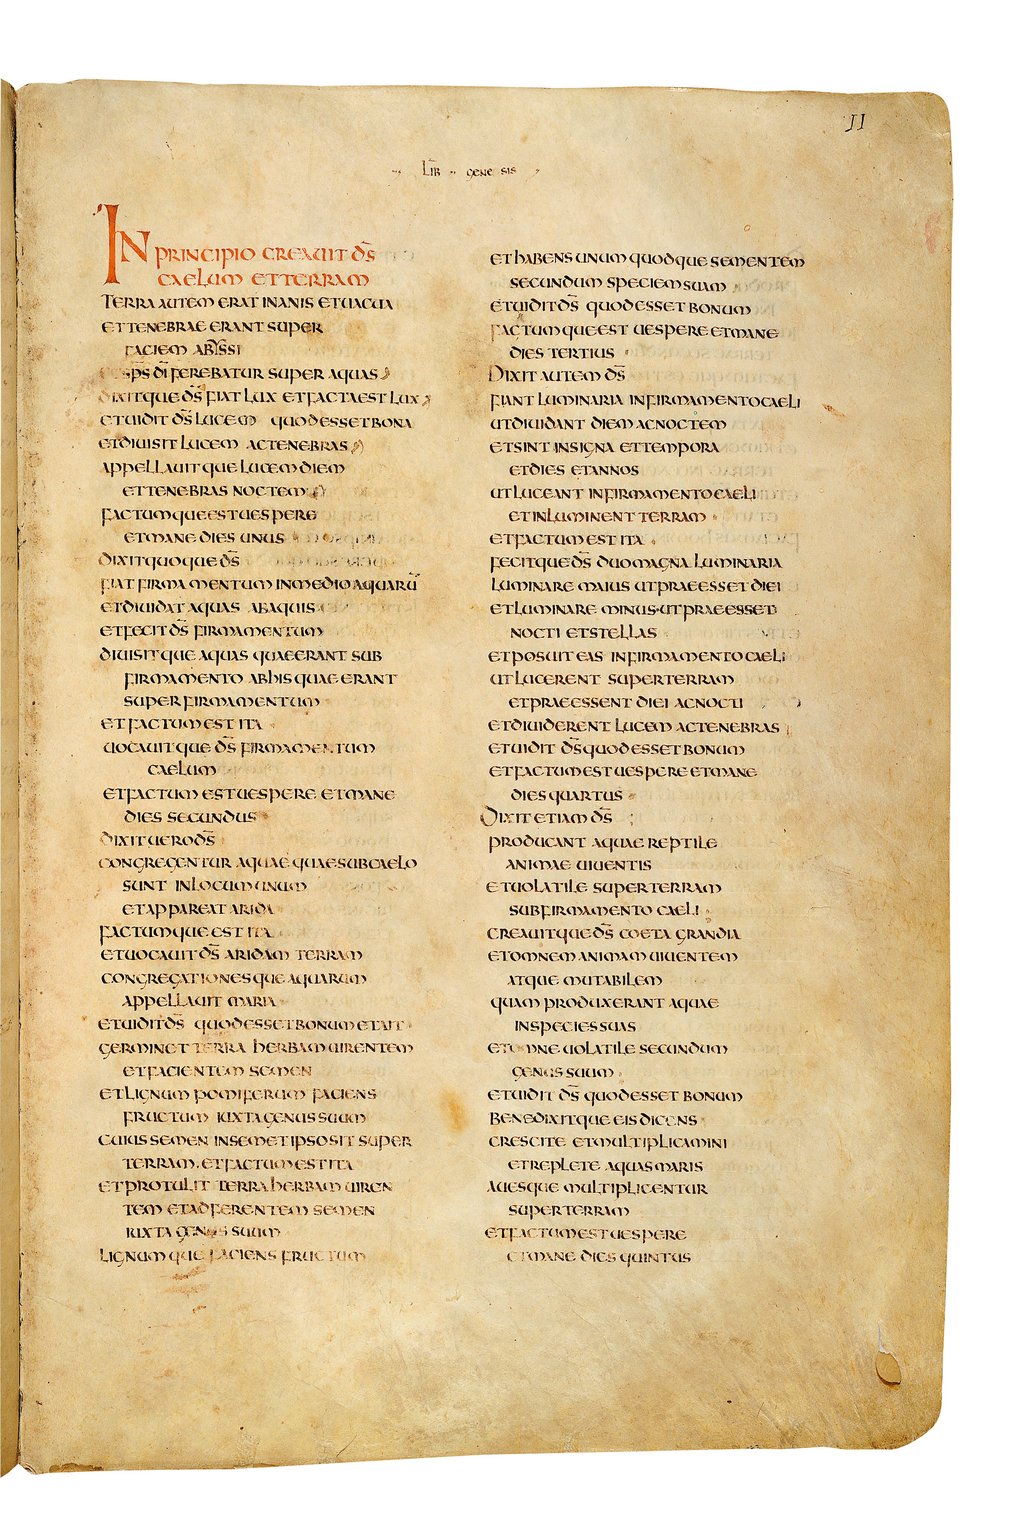 11
LIB GENESIS
IN PRINCIPIO CREAUIT D̄S
CAELUM ET TERRAM
TERRA AUTEM ERAT INANIS ET UACUA
ET TENEBRAE ERANT SUPER
FACIEM ABYSSI
SP̄S D̄I FEREBATUR SUPER AQUAS
DIXITQUE D̄S FIAT LUX ET FACTA EST LUX
ET UIDIT D̄S LUCEM QUOD ESSET BONA
ET DIUISIT LUCEM AC TENEBRAS
APPELLAUITQUE LUCEM DIEM
ET TENEBRAS NOCTEM
FACTUMQUE EST UESPERE
ET MANE DIES UNUS
DIXIT QUOQUE D̄S
FIAT FIRMAMENTUM IN MEDIO AQUARŪ
ET DIUIDAT AQUAS AB AQUIS
ET FECIT D̄S FIRMAMENTUM
DIUISITQUE AQUAS QUAE ERANT SUB
FIRMAMENTO AB HIS QUAE ERANT
SUPER FIRMAMENTUM
ET FACTUM EST ITA
UOCAUITQUE D̄S FIRMAMENTUM
CAELUM
ET FACTUM EST UESPERE ET MANE
DIES SECUNDUS
DIXIT UERO D̄S
CONGREGENTUR AQUAE QUAE SUB CAELO
SUNT IN LOCUM UNUM
ET APPAREAT ARIDA
FACTUMQUE EST ITA
ET UOCAUIT D̄S ARIDAM TERRAM
CONGREGATIONESQUE AQUARUM
APPELLAUIT MARIA
ET UIDIT D̄S QUOD ESSET BONUM ET AIT
GERMINET TERRA HERBAM UIRENTEM
ET FACIENTEM SEMEN
ET LIGNUM POMIFERUM FACIENS
FRUCTUM IUXTA GENUS SUUM
CUIUS SEMEN IN SEMET IPSO SIT SUPER
TERRAM. ET FACTUM EST ITA
ET PROTULIT TERRA HERBAM UIREN
TEM ET ADFERENTEM SEMEN
IUXTA GENUS SUUM
LIGNUMQUE FACIENS FRUCTUM
ET HABENS UNUMQUODQUE SEMENTEM
SECUNDUM SPECIEM SUAM
ET UIDIT D̄S QUOD ESSET BONUM
FACTUMQUE EST UESPERE ET MANE
DIES TERTIUS
DIXIT AUTEM D̄S
FIANT LUMINARIA IN FIRMAMENTO CAELI
UT DIUIDANT DIEM AC NOCTEM
ET SINT IN SIGNA ET TEMPORA
ET DIES ET ANNOS
UT LUCEANT IN FIRMAMENTO CAELI
ET INLUMINENT TERRAM
ET FACTUM EST ITA
FECITQUE D̄S DUO MAGNA LUMINARIA
LUMINARE MAIUS UT PRAEESSET DIEI
ET LUMINARE MINUS UT PRAEESSET
NOCTI ET STELLAS
ET POSUIT EAS IN FIRMAMENTO CAELI
UT LUCERENT SUPER TERRAM
ET PRAEESSENT DIEI AC NOCTI
ET DIUIDERENT LUCEM AC TENEBRAS
ET UIDIT D̄S QUOD ESSET BONUM
ET FACTUM EST UESPERE ET MANE
DIES QUARTUS
DIXIT ETIAM D̄S
PRODUCANT AQUAE REPTILE
ANIMAE UIUENTIS
ET UOLATILE SUPER TERRAM
SUB FIRMAMENTO CAELI
CREAUITQUE D̄S COETA GRANDIA
ET OMNEM ANIMAM UIUENTEM
ATQUE MUTABILEM
QUAM PRODUXERANT AQUAE
IN SPECIES SUAS
ET OMNE UOLATILE SECUNDUM
GENUS SUUM
ET UIDIT D̄S QUOD ESSET BONUM
BENEDIXITQUE EIS DICENS
CRESCITE ET MULTIPLICAMINI
ET REPLETE AQUAS MARIS
AUESQUE MULTIPLICENTUR
SUPER TERRAM
ET FACTUM EST UESPERE
ET MANE DIES QUINTUS